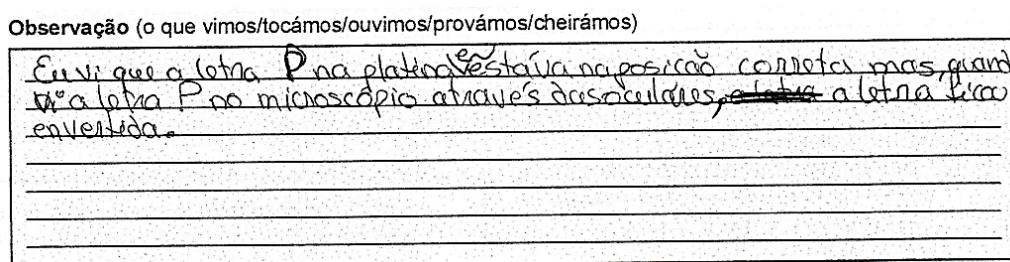 Observação (o que vimos/tocámos/ouvimos/provámos/cheirámos)
Eu vi que a letra P na platina estáva na posicão correta mas, quand
vi a letra P no microscópio através das oculares, a letra ficou
envertida.